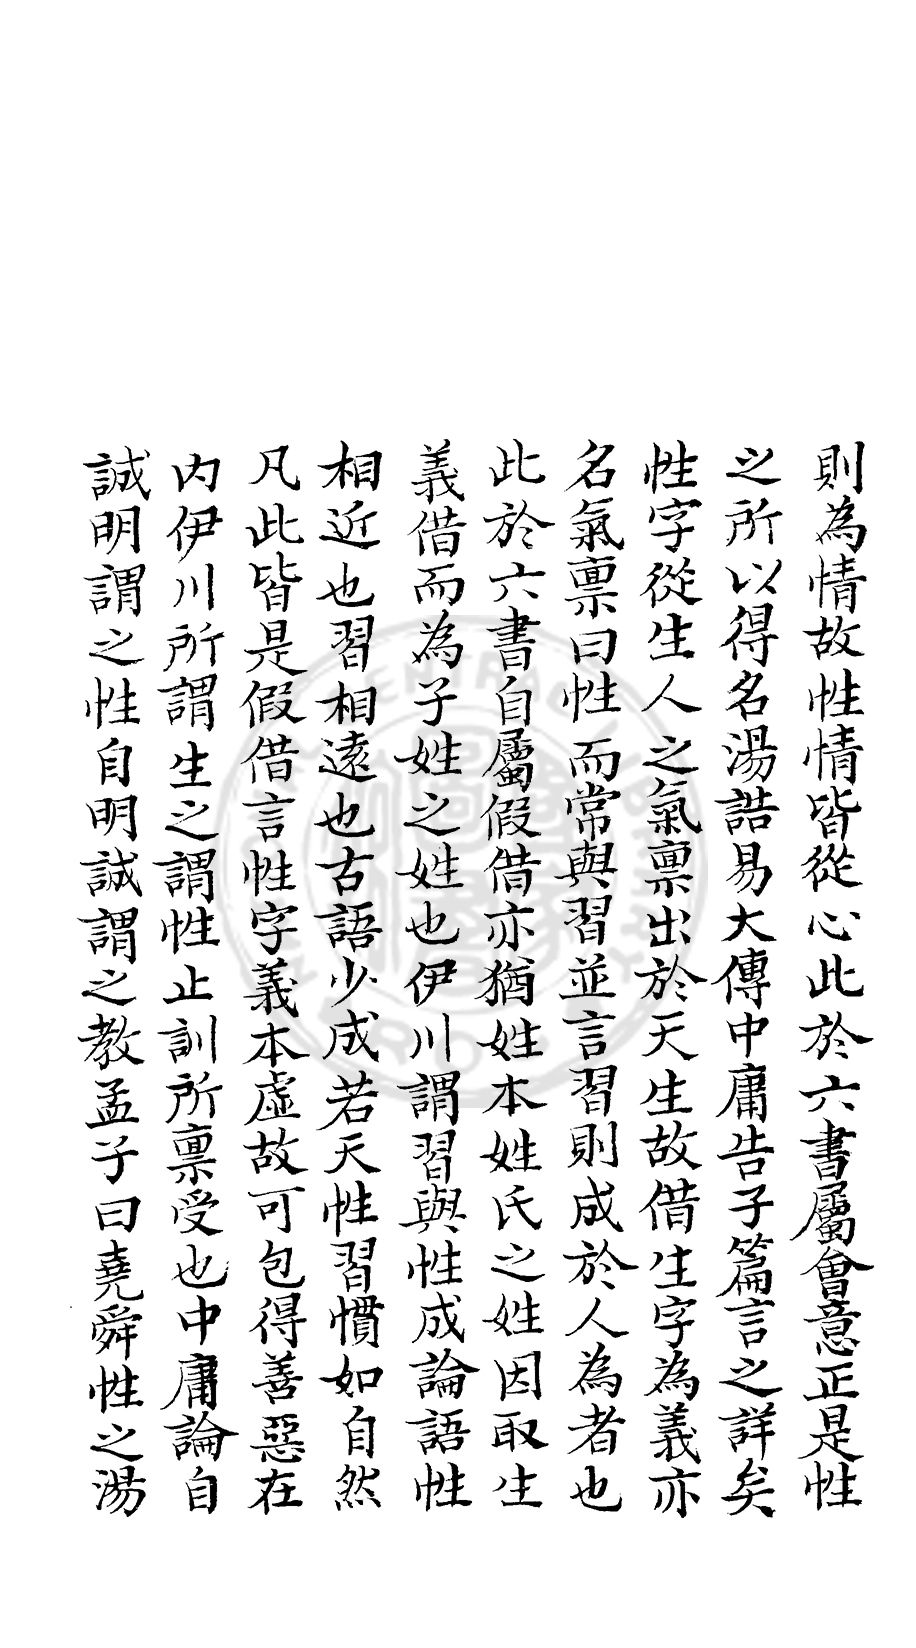 則為情故性情皆從心此於六書屬會意正是性
之所以得名湯誥易大傳中庸告子篇言之詳矣
性字從生人之氣禀出於天生故借生字為義亦
名氣禀曰性而常與習並言習則成於人為者也
此於六書自屬假借亦猶姓本姓氏之姓因取生
義借而為子姓之姓也伊川謂習與性成論語性
相近也習相遠也古語少成若天性習慣如自然
凡此皆是假借言性字義本虛故可包得善惡在
内伊川所謂生之謂性止訓所禀受也中庸論自
誠明謂之性自明誠謂之教孟子曰堯舜性之湯